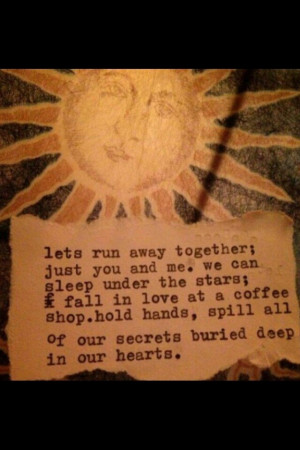 lets run away together;
just you and me. we can
sleep under the stars;
& fall in love at a coffee
shop.hold hands, spill all
of our secrets buried deep
in our hearts.